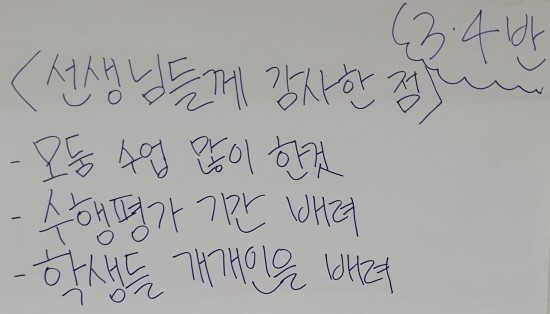 {3·4반
<선생님들께 감사한 점>
- 모둠 수업 많이 한것
- 수행평가 기간 배려
- 학생들 개개인을 배려